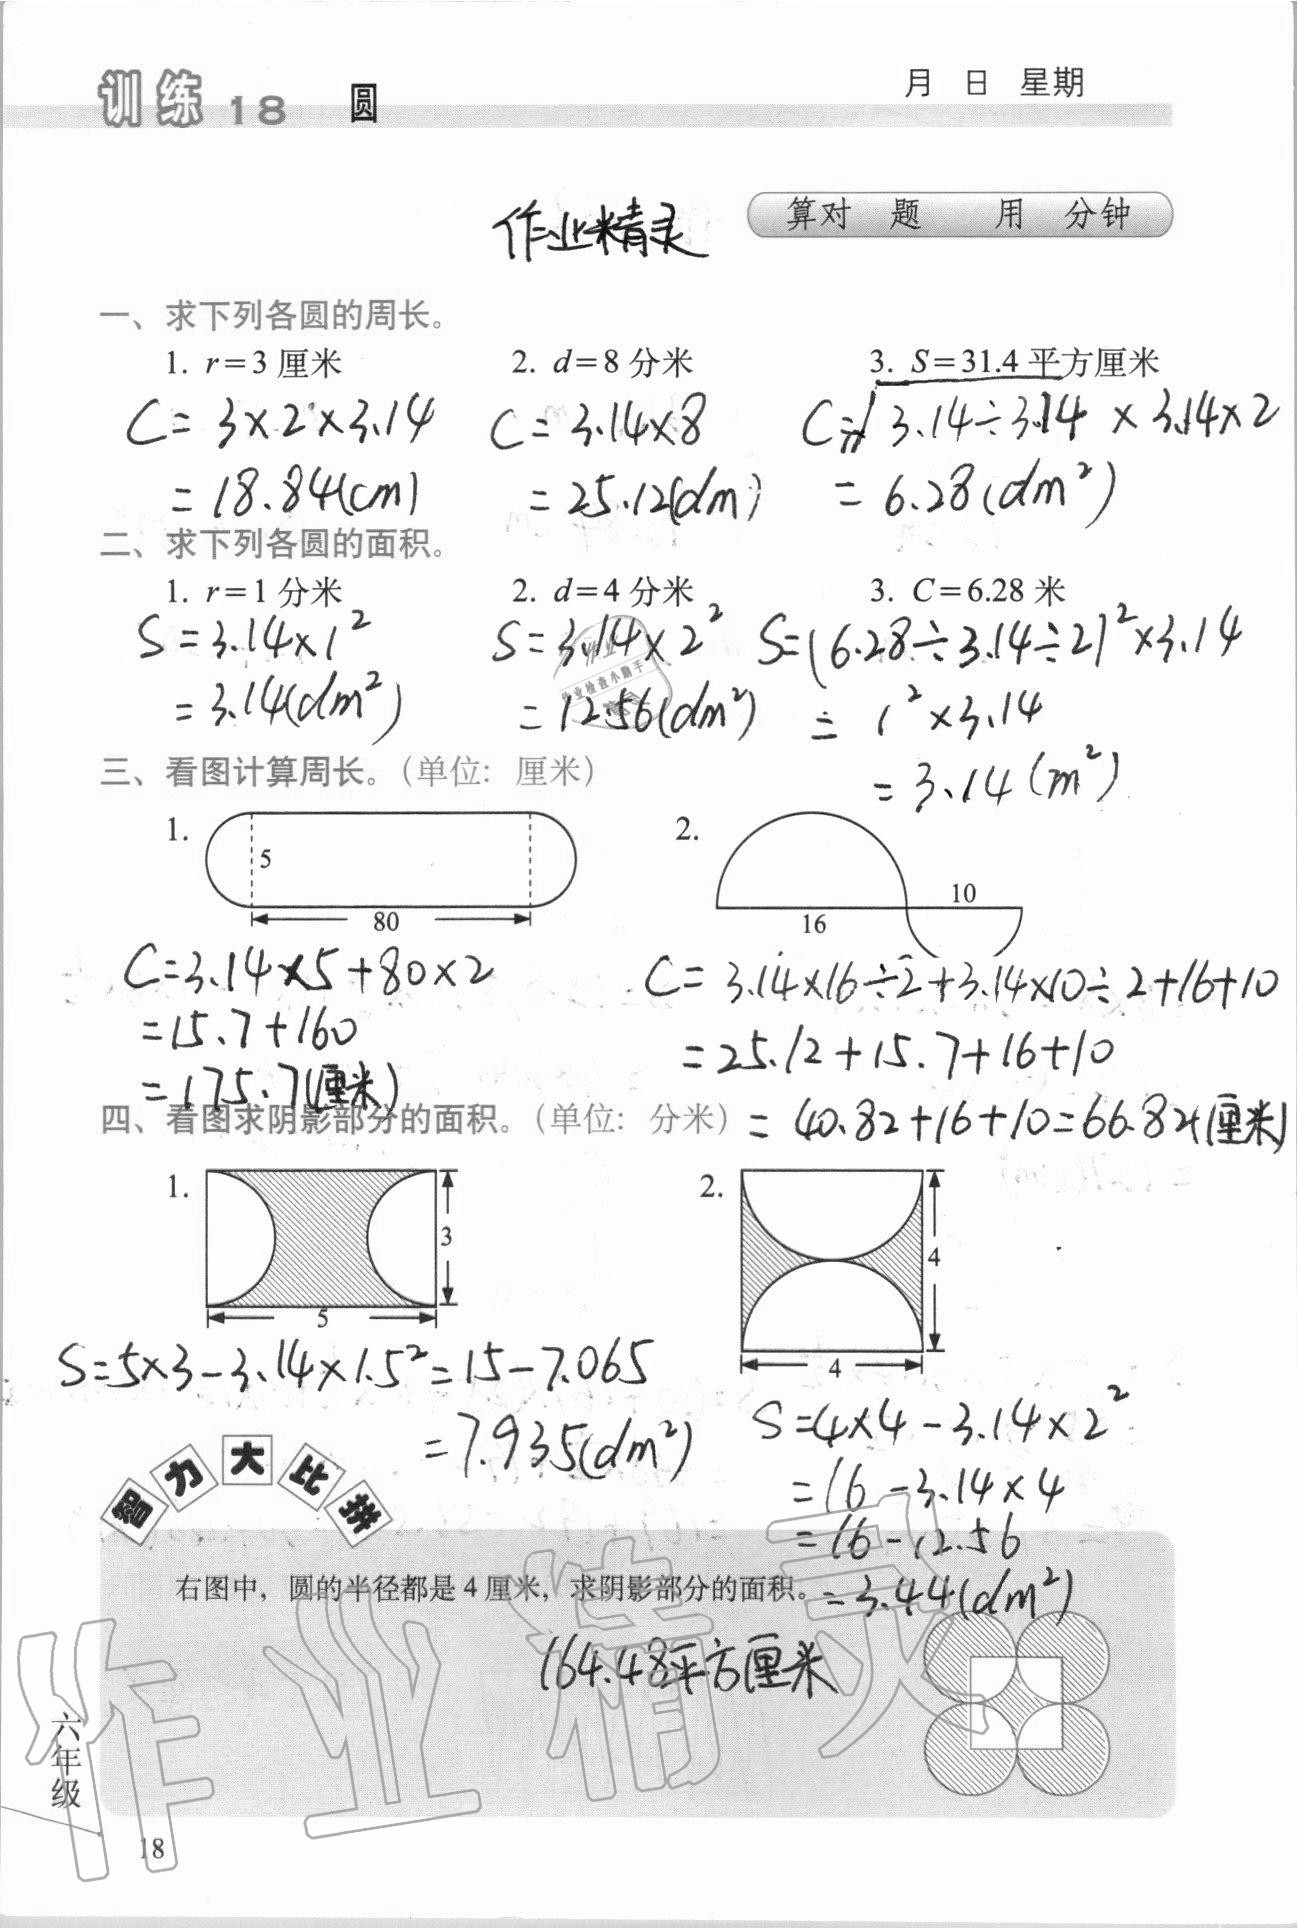 训练 18 圆
月 日 星期
算对 题 用 分钟
作业精灵
一、求下列各圆的周长。
1. r=3 厘米 2. d=8 分米 3. S=31.4 平方厘米
C=3×2×3.14 C=3.14×8 C=√3.14÷3.14 ×3.14×2
=18.84(cm) =25.12(dm) =6.28(dm²)
二、求下列各圆的面积。
1. r=1 分米 2. d=4 分米 3. C=6.28 米
S=3.14×1² S=3.14×2² S=(6.28÷3.14÷2)²×3.14
=3.14(dm²) =12.56(dm²) =1²×3.14
=3.14(m²)
作业检查小助手
三、看图计算周长。(单位: 厘米)
1. 5 80
2. 16 10
C=3.14×5+80×2
=15.7+160
=175.7(厘米)
C=3.14×16÷2+3.14×10÷2+16+10
=25.12+15.7+16+10
=40.82+16+10=66.82(厘米)
四、看图求阴影部分的面积。(单位: 分米)
1. 3 5
2. 4 4
S=5×3-3.14×1.5²=15-7.065
=7.935(dm²)
S=4×4-3.14×2²
=16-3.14×4
=16-12.56
=3.44(dm²)
智力大比拼
右图中, 圆的半径都是 4 厘米, 求阴影部分的面积。
164.48平方厘米
作业精灵
六年级
18